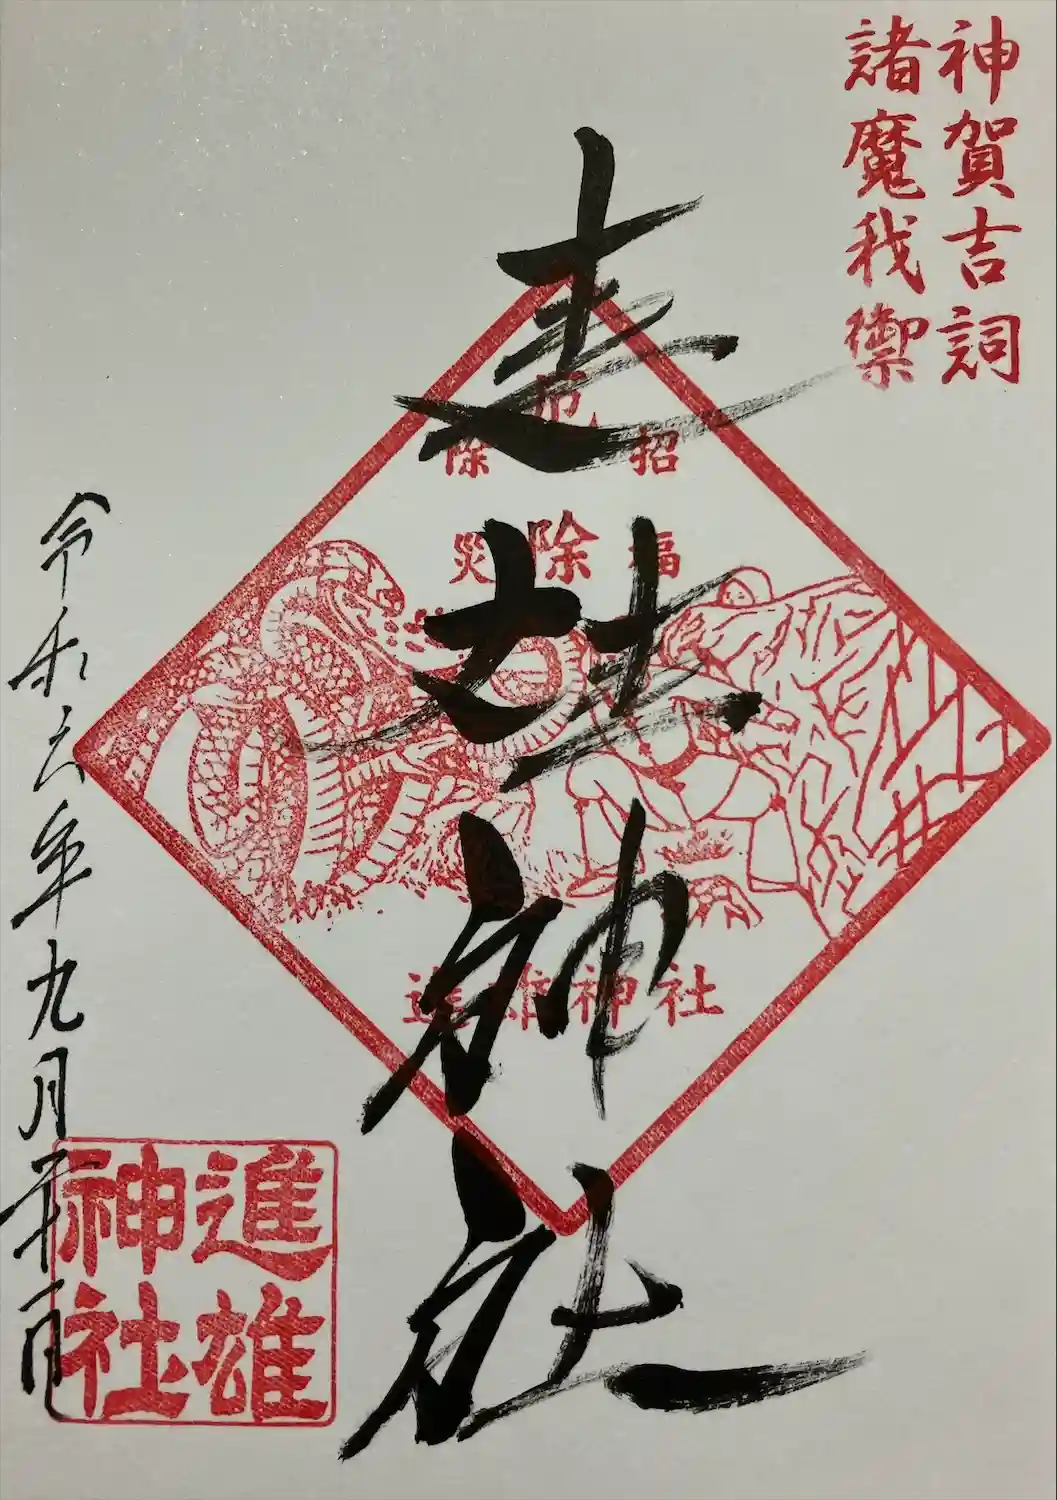 神賀吉詞
諸魔我禦
進雄神社
招福
厄除
除災
進雄神社
令和六年九月廿一日
進雄
神社